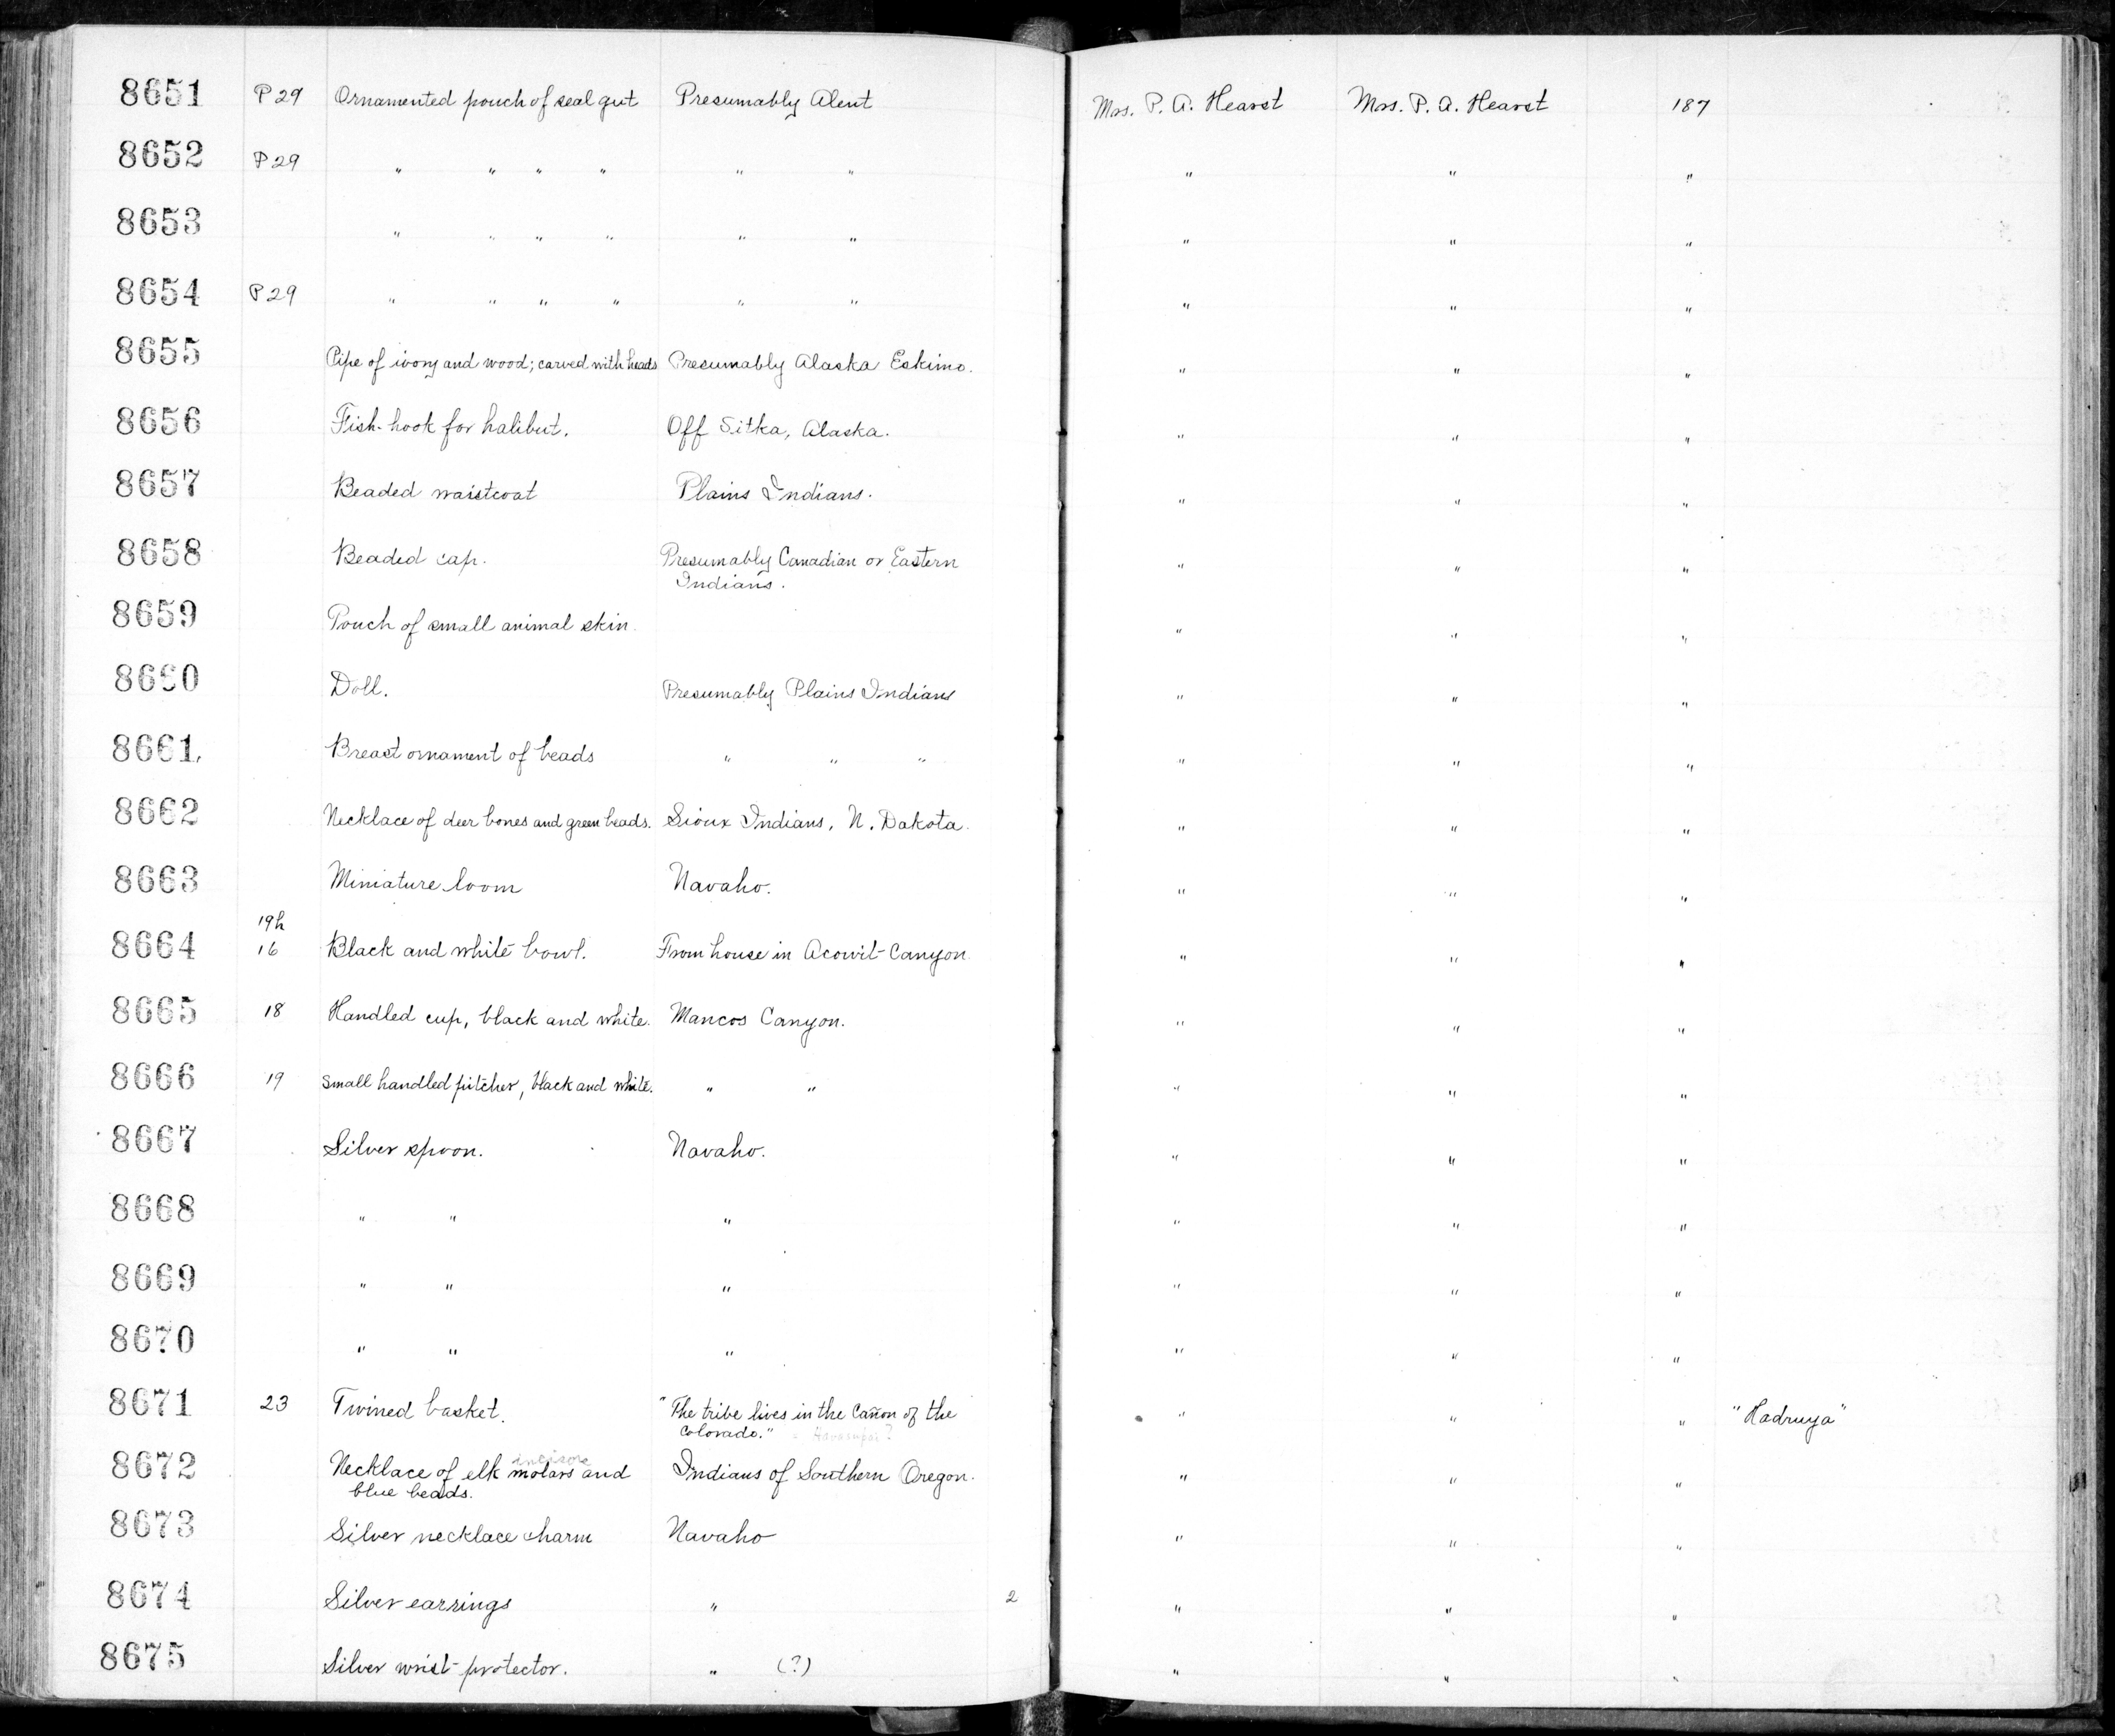 8651 P29 Ornamented pouch of seal gut Presumably Aleut Mrs. P. A. Hearst Mrs. P. A. Hearst 187
8652 P29 " " " " " " " " "
8653 " " " " " " " " "
8654 P29 " " " " " " " " "
8655 Pipe of ivory and wood; carved with heads Presumably Alaska Eskimo. " " "
8656 Fish-hook for halibut. Off Sitka, Alaska. " " "
8657 Beaded waistcoat Plains Indians. " " "
8658 Beaded cap. Presumably Canadian or Eastern " " "
Indians.
8659 Pouch of small animal skin. " " "
8660 Doll. Presumably Plains Indians " " "
8661. Breast ornament of beads " " " " " "
8662 Necklace of deer bones and green beads. Sioux Indians, N. Dakota. " " "
8663 Miniature loom Navaho. " " "
19h
8664 16 Black and white bowl. From house in Acowit Canyon " " "
8665 18 Handled cup, black and white. Mancos Canyon. " " "
8666 19 Small handled pitcher, black and white. " " " " "
8667 Silver spoon. Navaho. " " "
8668 " " " " " "
8669 " " " " " "
8670 " " " " " "
8671 23 Twined basket. "The tribe lives in the Cañon of the " " " "Hadruya"
Colorado." = Havasupai?
incisors
8672 Necklace of elk molars and Indians of Southern Oregon. " " "
blue beads.
8673 Silver necklace charm Navaho " " "
8674 Silver earrings " 2 " " "
8675 Silver wrist-protector. " (?) " " "